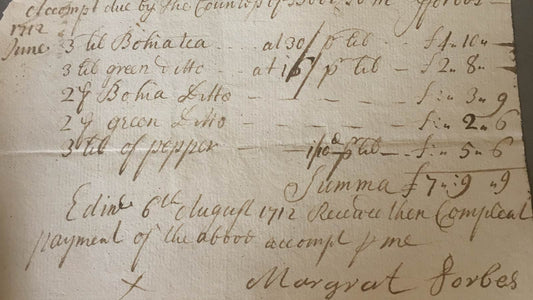 Accompt due by the Countos of to Forbes
1712
June 3 lib Bohia tea - - - at 30/ p lib - £ 4 " 10 " -
3 lib green ditto - - - at 16/ p lib - £ 2 " 8 " -
2 ʒ Bohia Ditto - - - - £ : " 3 " 9
2 ʒ green Ditto - - - - £ : " 2 " 6
3 lib of pepper - - 1/10d p lib - £ : " 5 " 6
Summa £ 7 " : 9 " 9
Edinr 6th August 1712 Receive then Compleat
payment of the above accompt p me
x Margrat Forbes